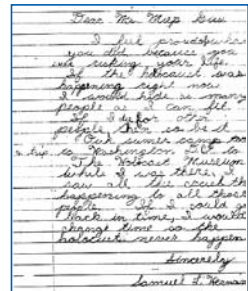 Dear Ms. Miep Gies
I feel proud of what
you did because you
were risking your life.
If the holocaust was
happening right now
I would hide as many
people as I can fit.
If I die for other
people, then so be it.
Our sumer camp took
a trip to Washington D.C. to
The Holocast Museum
while I was there, I
saw all the
happening to all those
people. If I could go
back in time, I would
change time so the
holocust never happen
Sincerely
Samuel L.